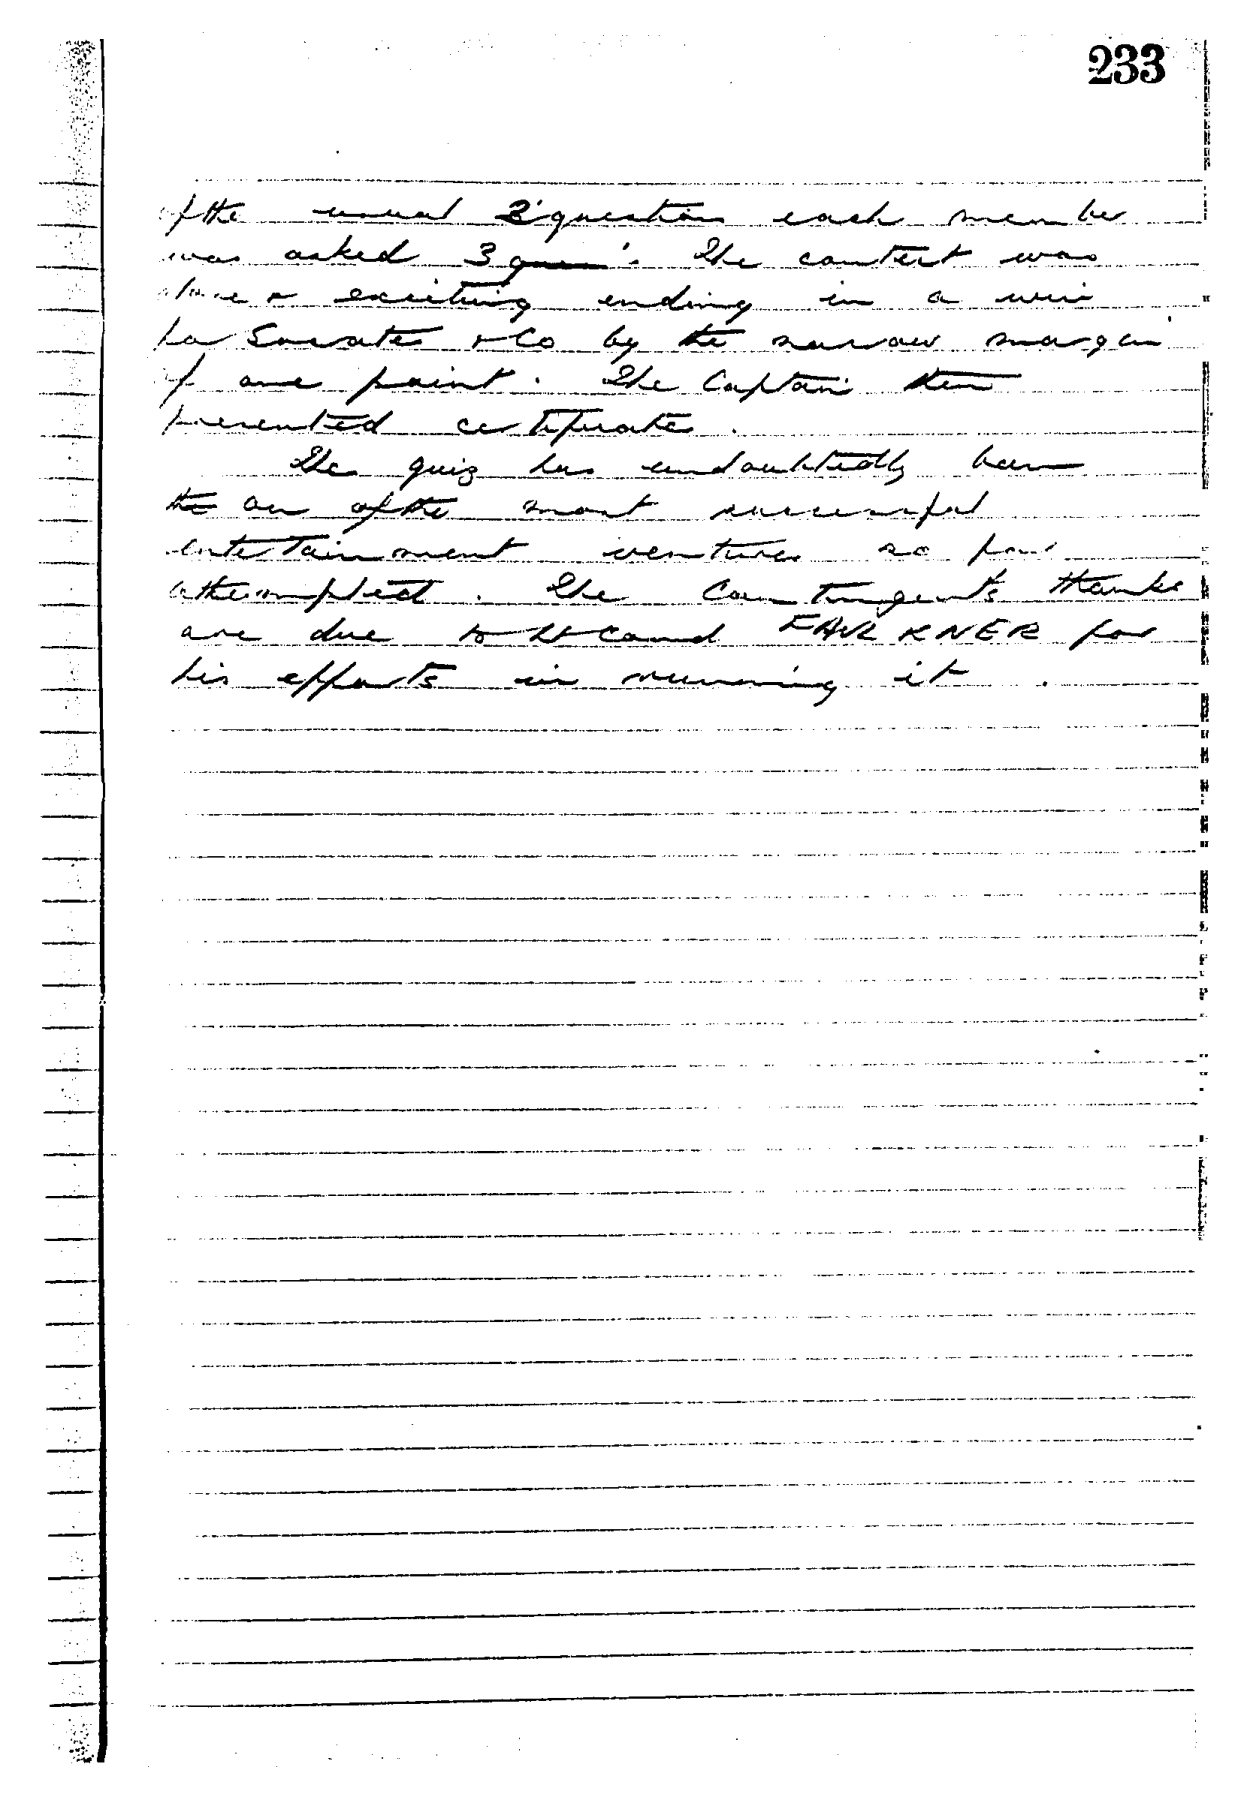 233
of the usual 2 question each member
was asked 3 ques. The contest was
close & exciting ending in a win
for Socrates & Co by the narrow margin
of one point. The Captain then
presented certificates.
The quiz has undoubtedly been
the on of the most successful
entertainment ventures so far
atthempted. The Contingents thanks
are due to Lt Comd FAULKNER for
his efforts in running it.